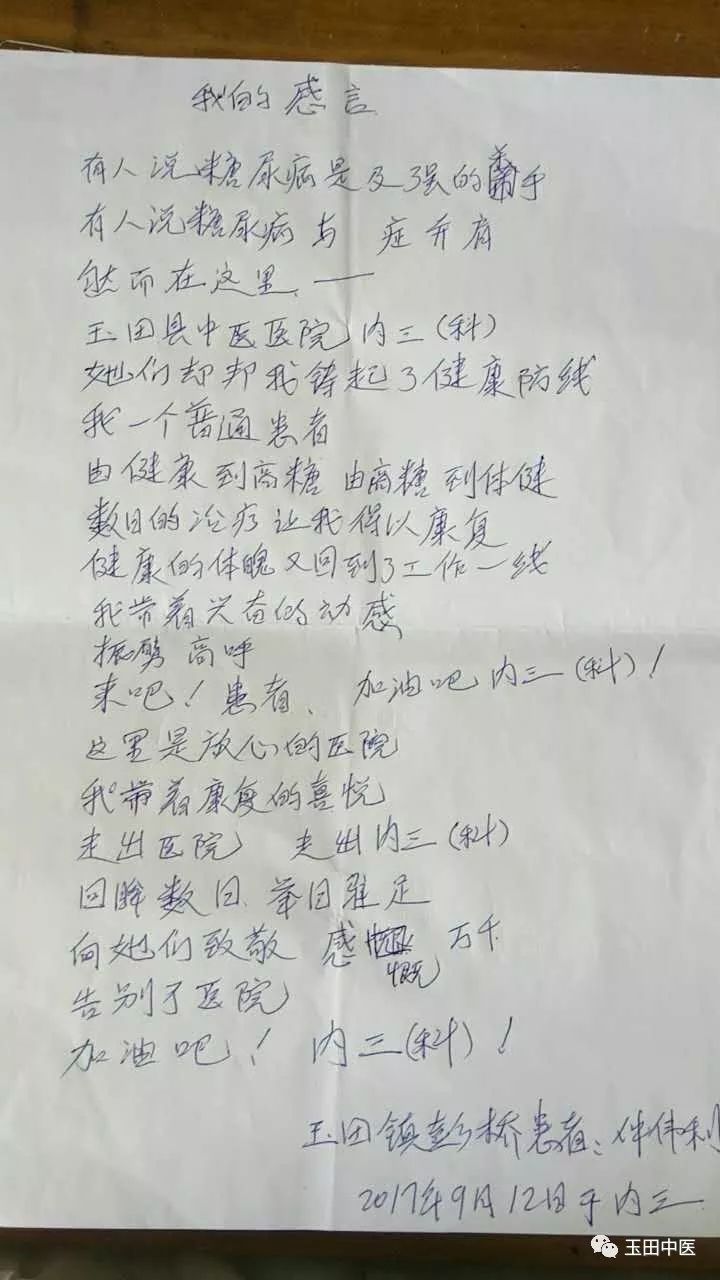 我的感言
有人说糖尿病是及强的杀手
有人说糖尿病与 症并肩
然而在这里、——
玉田县中医医院内三(科)
她们却邦我铸起了健康防线
我一个普通患者
由健康到高糖 由高糖到体健
数日的治疗让我得以康复
健康的体魄又回到了工作一线
我带着兴奋的动感
振臂高呼
来吧！患者、 加油吧内三(科)！
这里是放心的医院
我带着康复的喜悦
走出医院 走出内三(科)
回眸数日、举目驻足
向她们致敬 感慨万千
告别了医院
加油吧！ 内三(科)！
玉田镇彭桥患者：伟利
2017年9月12日于内三
玉田中医